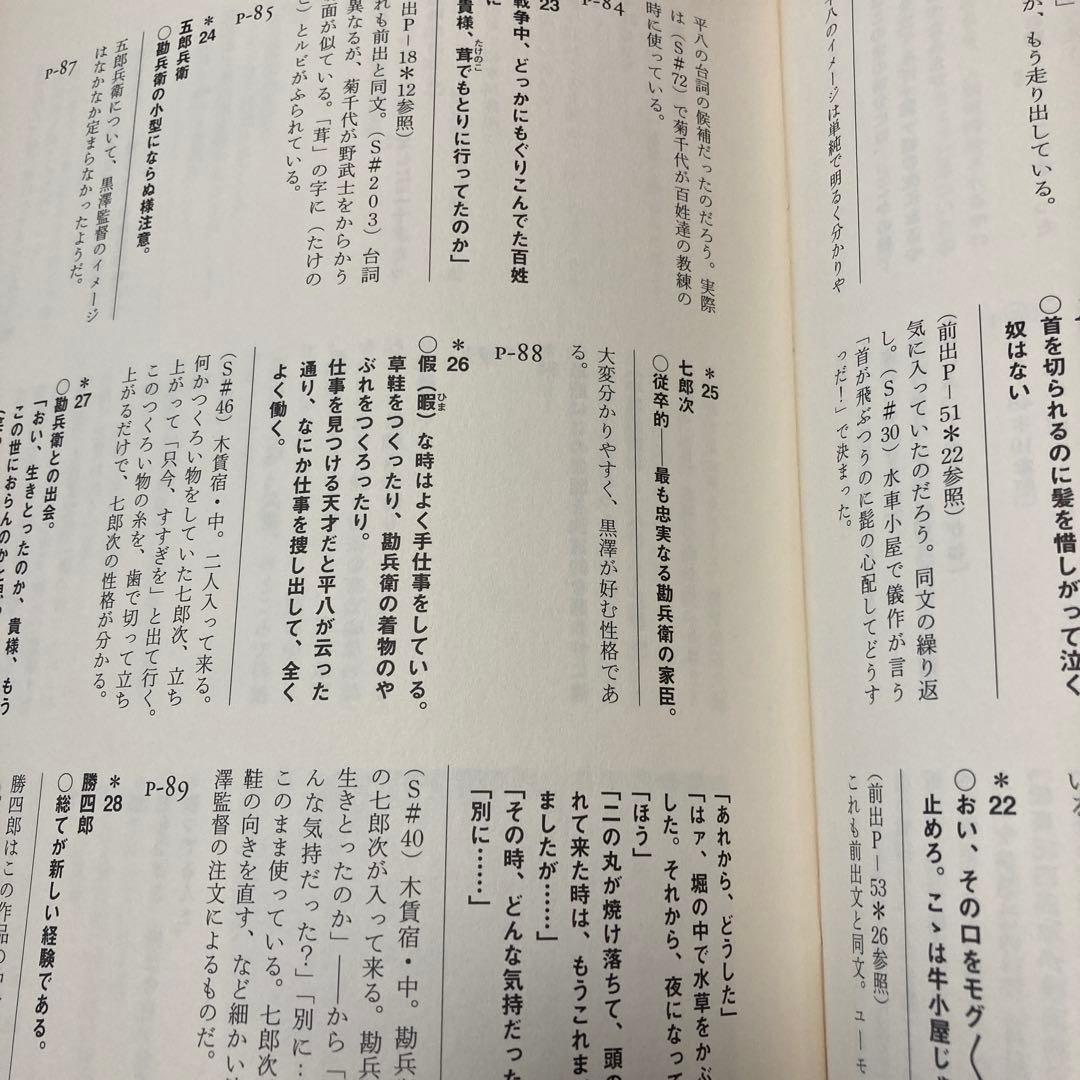 が、もう走り出している。
八のイメージは単純で明るく分かりや
○首を切られるのに髪を惜しがって泣く
奴はない
(前出P−51*22参照)
気に入っていたのだろう。同文の繰り返
し。(S#30)水車小屋で儀作が言う
「首が飛ぶつうのに髭の心配してどうす
っだ!」で決まった。
いる
*22
○おい、その口をモグ〱
止めろ。こゝは牛小屋じ
(前出P−53*26参照)
これも前出文と同文。ユーモ
平八の台詞の候補だったのだろう。実際
は(S#72)で菊千代が百姓達の教練の
時に使っている。
P-84
23
戦争中、どっかにもぐりこんでた百姓
に
貴様、茸でもとりに行ってたのか」
たけのこ
出P−18*12参照)
れも前出と同文。(S#203)台詞
異なるが、菊千代が野武士をからかう
面が似ている。「茸」の字に(たけの
こ)とルビがふられている。
P-85
*24
五郎兵衛
○勘兵衛の小型にならぬ様注意。
五郎兵衛について、黒澤監督のイメージ
はなかなか定まらなかったようだ。
P-87
*25
七郎次
○従卒的――最も忠実なる勘兵衛の家臣。
大変分かりやすく、黒澤が好む性格であ
る。
P-88
*26
○假(暇)な時はよく手仕事をしている。
ひま
草鞋をつくったり、勘兵衛の着物のや
ぶれをつくろったり。
仕事を見つける天才だと平八が云った
通り、なにか仕事を捜し出して、全く
よく働く。
(S#46)木賃宿・中。二人入って来る。
何かつくろい物をしていた七郎次、立ち
上がって「只今、すすぎを」と出て行く。
このつくろい物の糸を、歯で切って立ち
上がるだけで、七郎次の性格が分かる。
*27
○勘兵衛との出会。
「おい、生きとったのか、貴様、もう
この世におらんのかと思
「あれから、どうした」
「はァ、堀の中で水草をかぶ
した。それから、夜になって
「ほう」
「二の丸が焼け落ちて、頭の
れて来た時は、もうこれま
ましたが……」
「その時、どんな気持だった
「別に……」
(S#40)木賃宿・中。勘兵
の七郎次が入って来る。勘兵
生きとったのか」――から「
んな気持だった?」「別に…
このまま使っている。七郎次
鞋の向きを直す、など細かい
澤監督の注文によるものだ。
P-89
*28
勝四郎
○総てが新しい経験である。
勝四郎はこの作品の